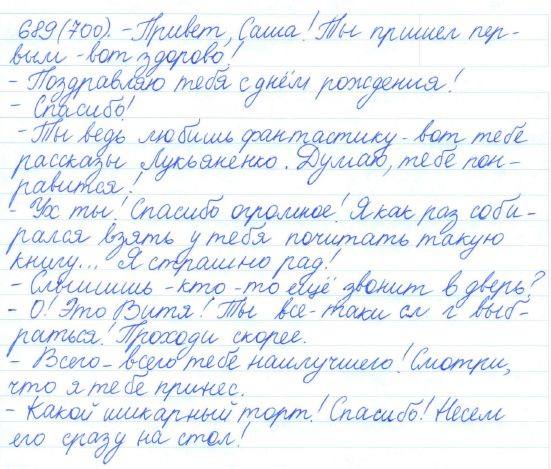 689(700). - Привет, Саша! Ты пришел пер-
вым - вот здорово!
- Поздравляю тебя с днём рождения!
- Спасибо!
- Ты ведь любишь фантастику - вот тебе
рассказы Лукьяненко. Думаю, тебе пон-
равится!
- Ух ты! Спасибо огромное! Я как раз соби-
рался взять у тебя почитать такую
книгу... Я страшно рад!
- Слышишь - кто-то ещё звонит в дверь?
- О! Это Витя! Ты все-таки см г выб-
раться! Проходи скорее.
- Всего-всего тебе наилучшего! Смотри,
что я тебе принес.
- Какой шикарный торт! Спасибо! Несем
его сразу на стол!